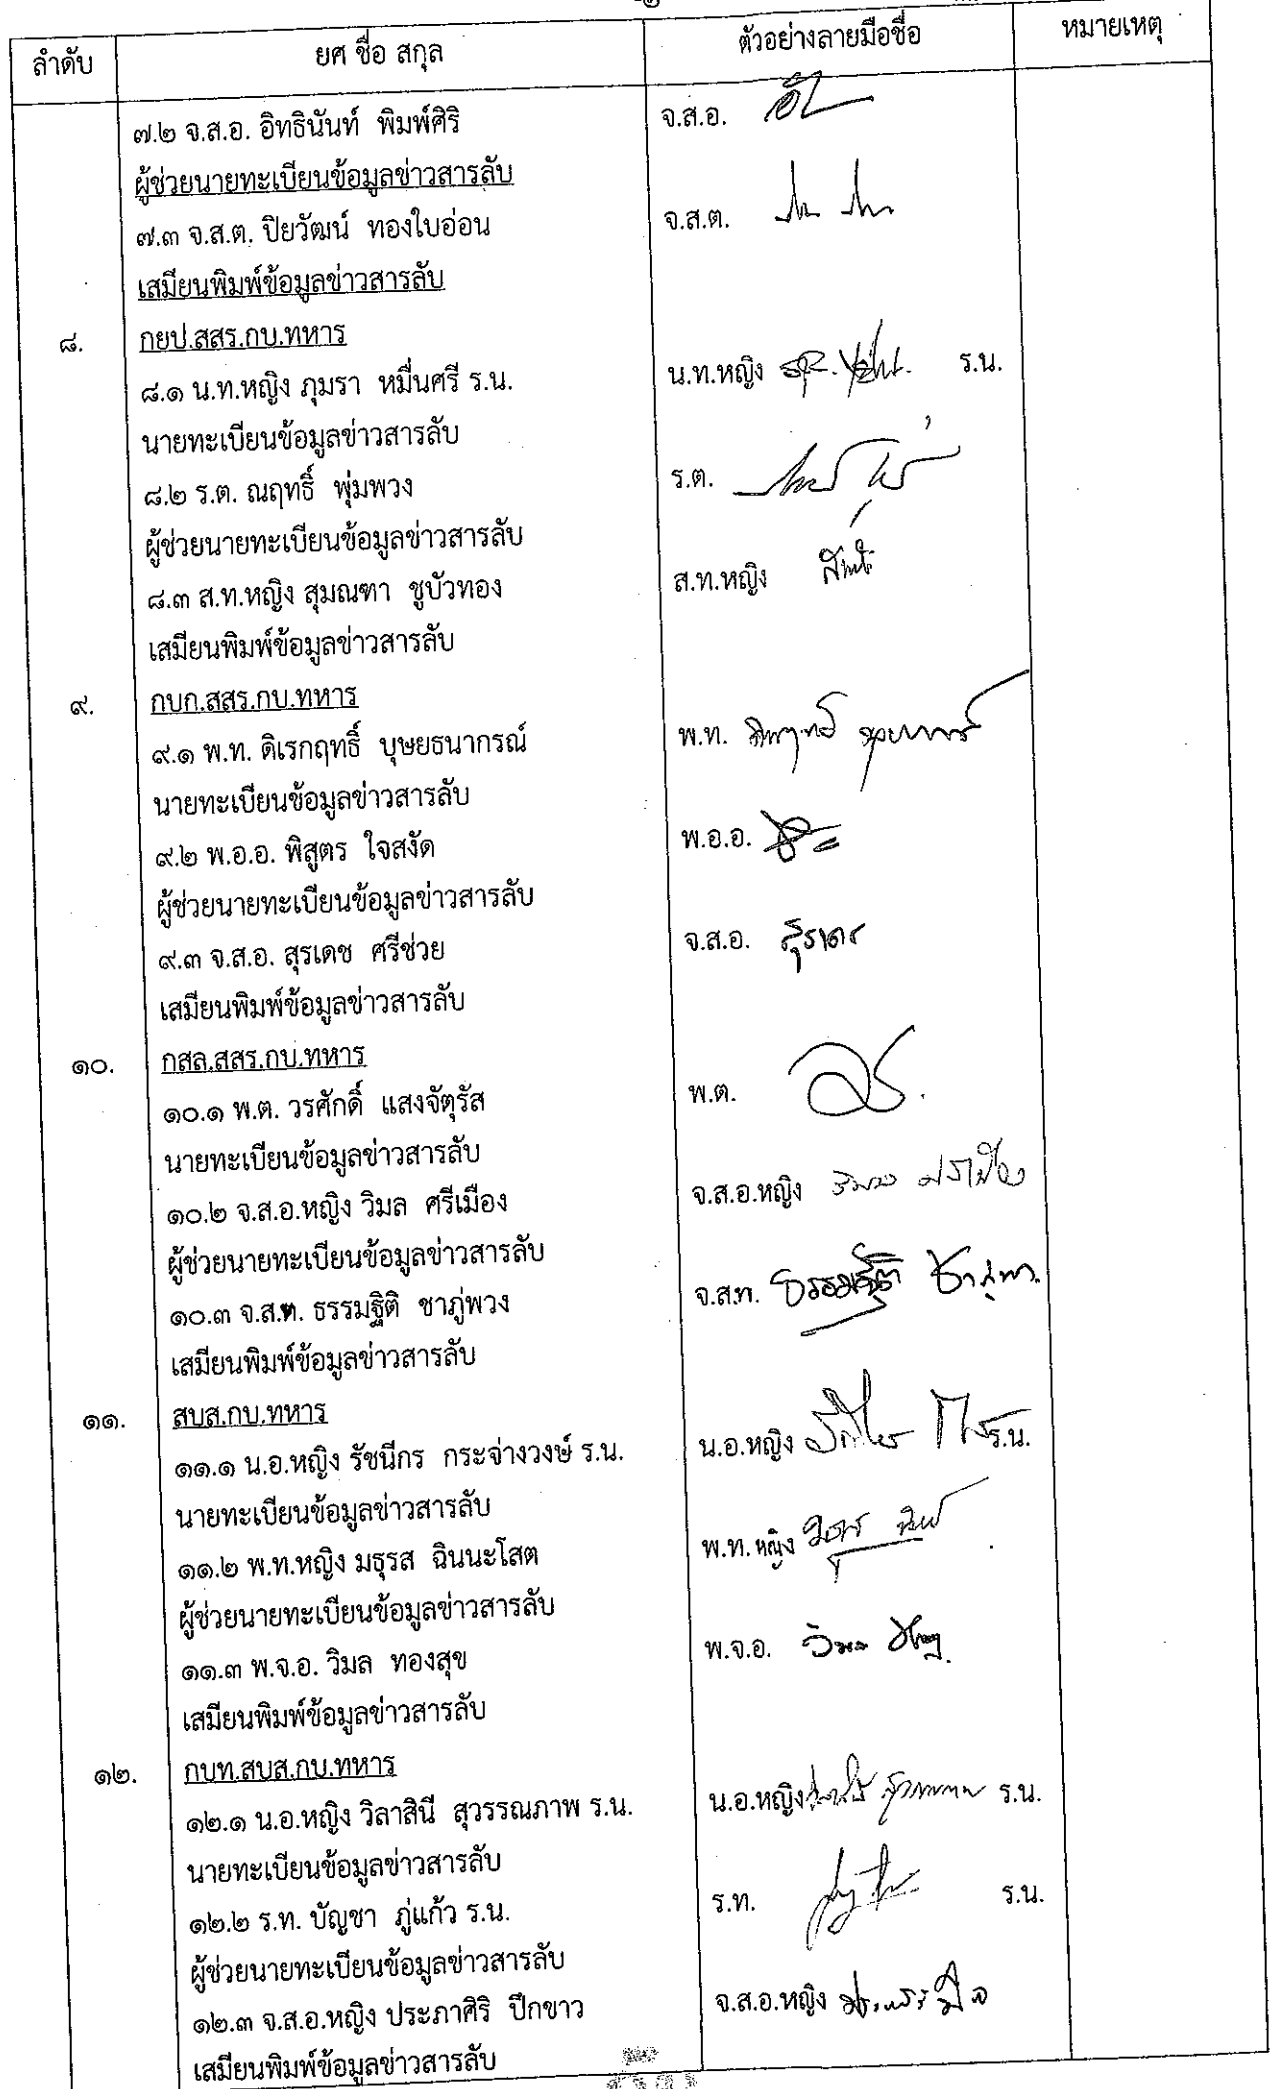 -๒-
ลำดับ ยศ ชื่อ สกุล ตัวอย่างลายมือชื่อ หมายเหตุ
๗.๒ จ.ส.อ. อิทธินันท์ พิมพ์ศิริ จ.ส.อ.
ผู้ช่วยนายทะเบียนข้อมูลข่าวสารลับ
๗.๓ จ.ส.ต. ปิยวัฒน์ ทองใบอ่อน จ.ส.ต.
เสมียนพิมพ์ข้อมูลข่าวสารลับ
๘. กยป.สสร.กบ.ทหาร
๘.๑ น.ท.หญิง ภุมรา หมื่นศรี ร.น. น.ท.หญิง ร.น.
นายทะเบียนข้อมูลข่าวสารลับ
๘.๒ ร.ต. ณฤทธิ์ พุ่มพวง ร.ต.
ผู้ช่วยนายทะเบียนข้อมูลข่าวสารลับ
๘.๓ ส.ท.หญิง สุมณฑา ชูบัวทอง ส.ท.หญิง
เสมียนพิมพ์ข้อมูลข่าวสารลับ
๙. กบก.สสร.กบ.ทหาร
๙.๑ พ.ท. ดิเรกฤทธิ์ บุษยธนากรณ์ พ.ท.
นายทะเบียนข้อมูลข่าวสารลับ
๙.๒ พ.อ.อ. พิสูตร ใจสงัด พ.อ.อ.
ผู้ช่วยนายทะเบียนข้อมูลข่าวสารลับ
๙.๓ จ.ส.อ. สุรเดช ศรีช่วย จ.ส.อ. สุรเดช
เสมียนพิมพ์ข้อมูลข่าวสารลับ
๑๐. กสล.สสร.กบ.ทหาร
๑๐.๑ พ.ต. วรศักดิ์ แสงจัตุรัส พ.ต.
นายทะเบียนข้อมูลข่าวสารลับ
๑๐.๒ จ.ส.อ.หญิง วิมล ศรีเมือง จ.ส.อ.หญิง
ผู้ช่วยนายทะเบียนข้อมูลข่าวสารลับ
๑๐.๓ จ.ส.ท. ธรรมฐิติ ชาภู่พวง จ.ส.ท. ธรรมฐิติ
เสมียนพิมพ์ข้อมูลข่าวสารลับ
๑๑. สบส.กบ.ทหาร
๑๑.๑ น.อ.หญิง รัชนีกร กระจ่างวงษ์ ร.น. น.อ.หญิง ร.น.
นายทะเบียนข้อมูลข่าวสารลับ
๑๑.๒ พ.ท.หญิง มธุรส ฉินนะโสต พ.ท.หญิง
ผู้ช่วยนายทะเบียนข้อมูลข่าวสารลับ
๑๑.๓ พ.จ.อ. วิมล ทองสุข พ.จ.อ.
เสมียนพิมพ์ข้อมูลข่าวสารลับ
๑๒. กบท.สบส.กบ.ทหาร
๑๒.๑ น.อ.หญิง วิลาสินี สุวรรณภาพ ร.น. น.อ.หญิง ร.น.
นายทะเบียนข้อมูลข่าวสารลับ
๑๒.๒ ร.ท. บัญชา ภู่แก้ว ร.น. ร.ท. ร.น.
ผู้ช่วยนายทะเบียนข้อมูลข่าวสารลับ
๑๒.๓ จ.ส.อ.หญิง ประภาศิริ ปีกขาว จ.ส.อ.หญิง
เสมียนพิมพ์ข้อมูลข่าวสารลับ